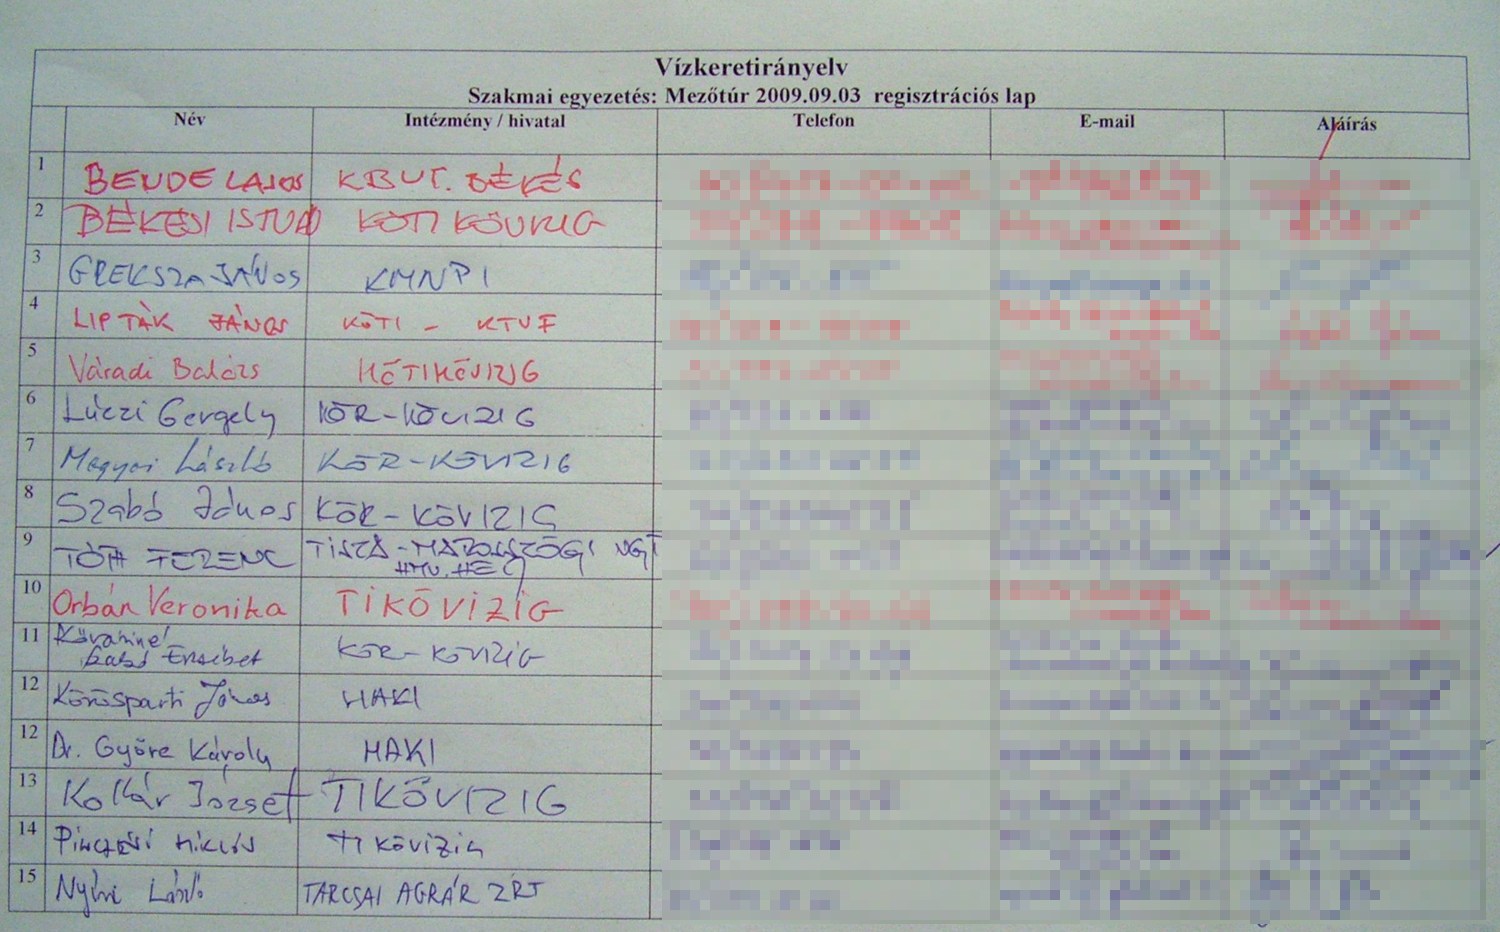 Vízkeretirányelv
Szakmai egyezetés: Mezőtúr 2009.09.03 regisztrációs lap
Név Intézmény / hivatal Telefon E-mail Aláírás
1 BENDE LAJOS KBUT. BÉKÉS
2 BÉKÉSI ISTVÁN KÖTI KÖVIZIG
3 GREKSZA JÁNOS KMNPI
4 LIPTÁK JÁNOS KÖTI - KTVF
5 Váradi Balázs KÖTIKÖVIZIG
6 Lúczi Gergely KÖR-KÖVIZIG
7 Megyeri László KÖR-KÖVIZIG
8 Szabó János KÖR-KÖVIZIG
9 TÓTH FERENC TISZA-MAROSSZÖGI
10 Orbán Veronika TIKÖVIZIG
11 Erzsébet KÖR-KÖVIZIG
12 Körösparti János HAKI
12 Dr. Györe Károly HAKI
13 József TIKÖVIZIG
14 Miklós TIKÖVIZIG
15 László TARCSAI AGRÁR ZRT